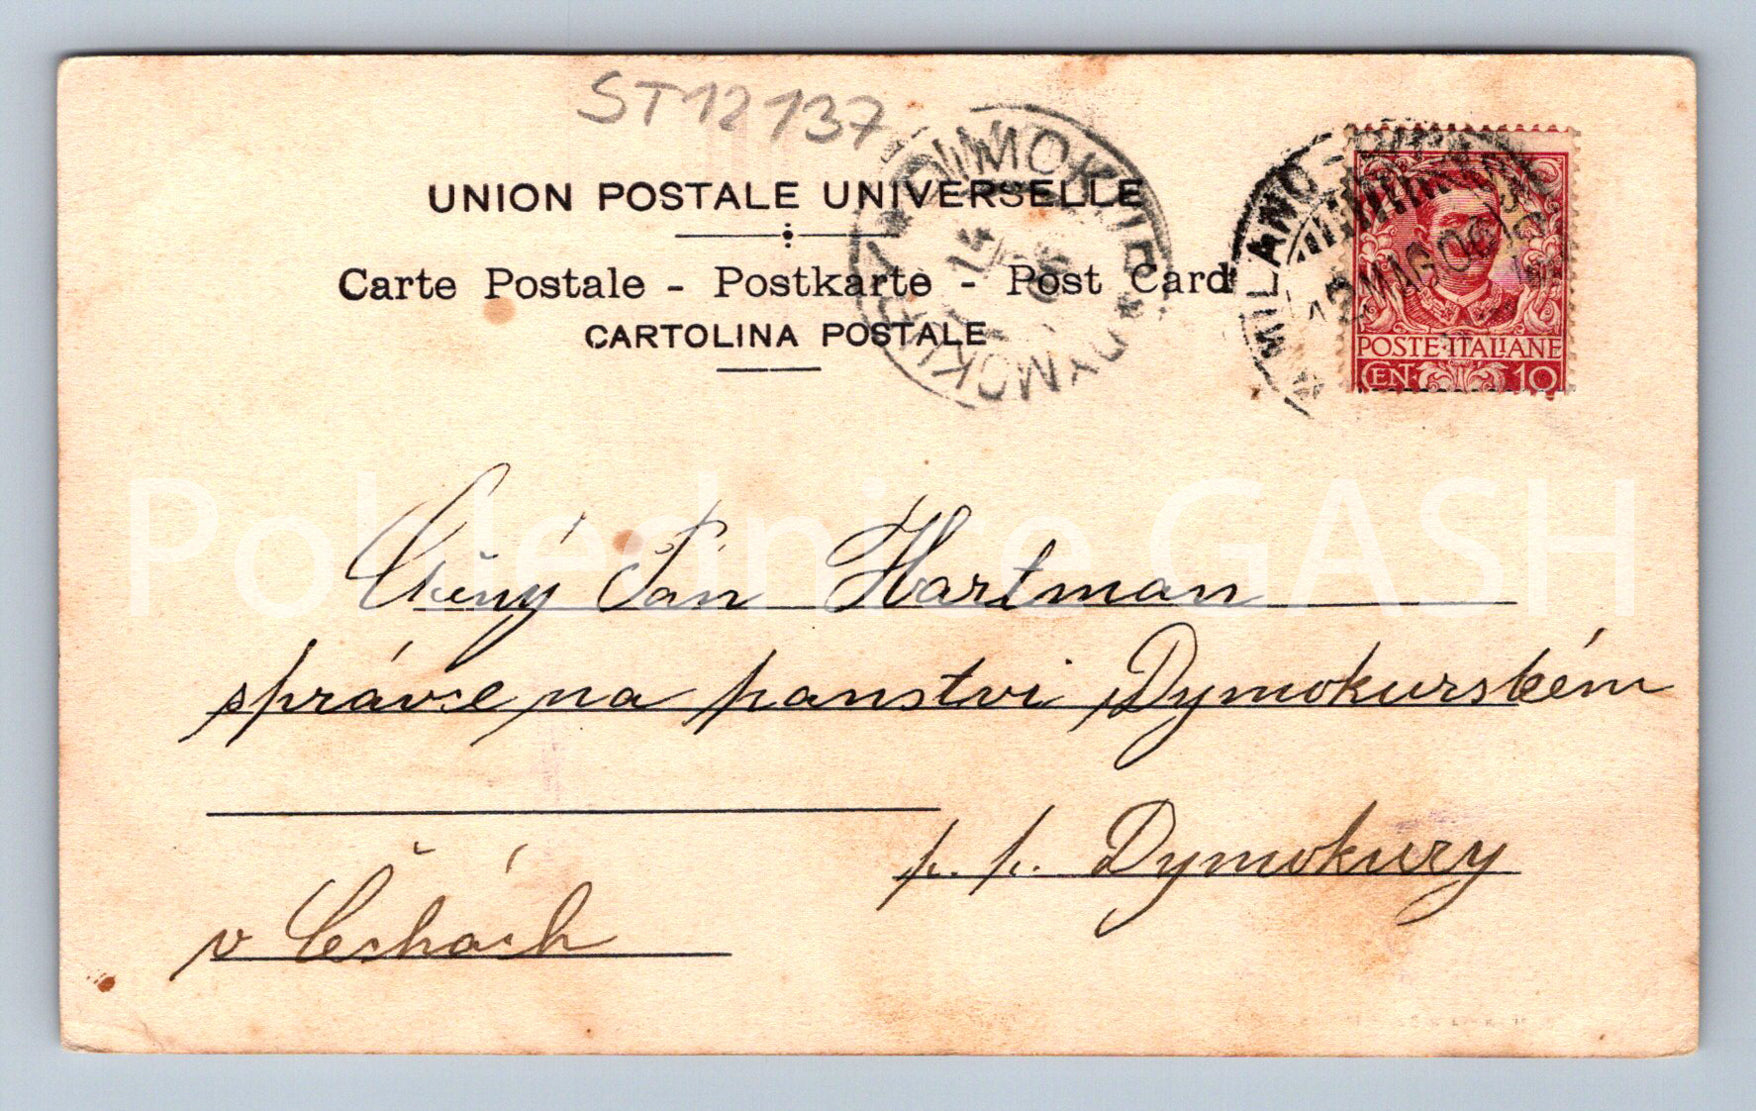 ST12137
UNION POSTALE UNIVERSELLE
Carte Postale - Postkarte - Post Card
CARTOLINA POSTALE
DIMOKUR
DYMOKURY
14
06
MILANO
12 MAG 06
POSTE·ITALIANE
CEN. 10
Pohlednice GASH
Ctěný Pán Hartman
správce na panství Dymokurském
p. p. Dymokury
v Čechách